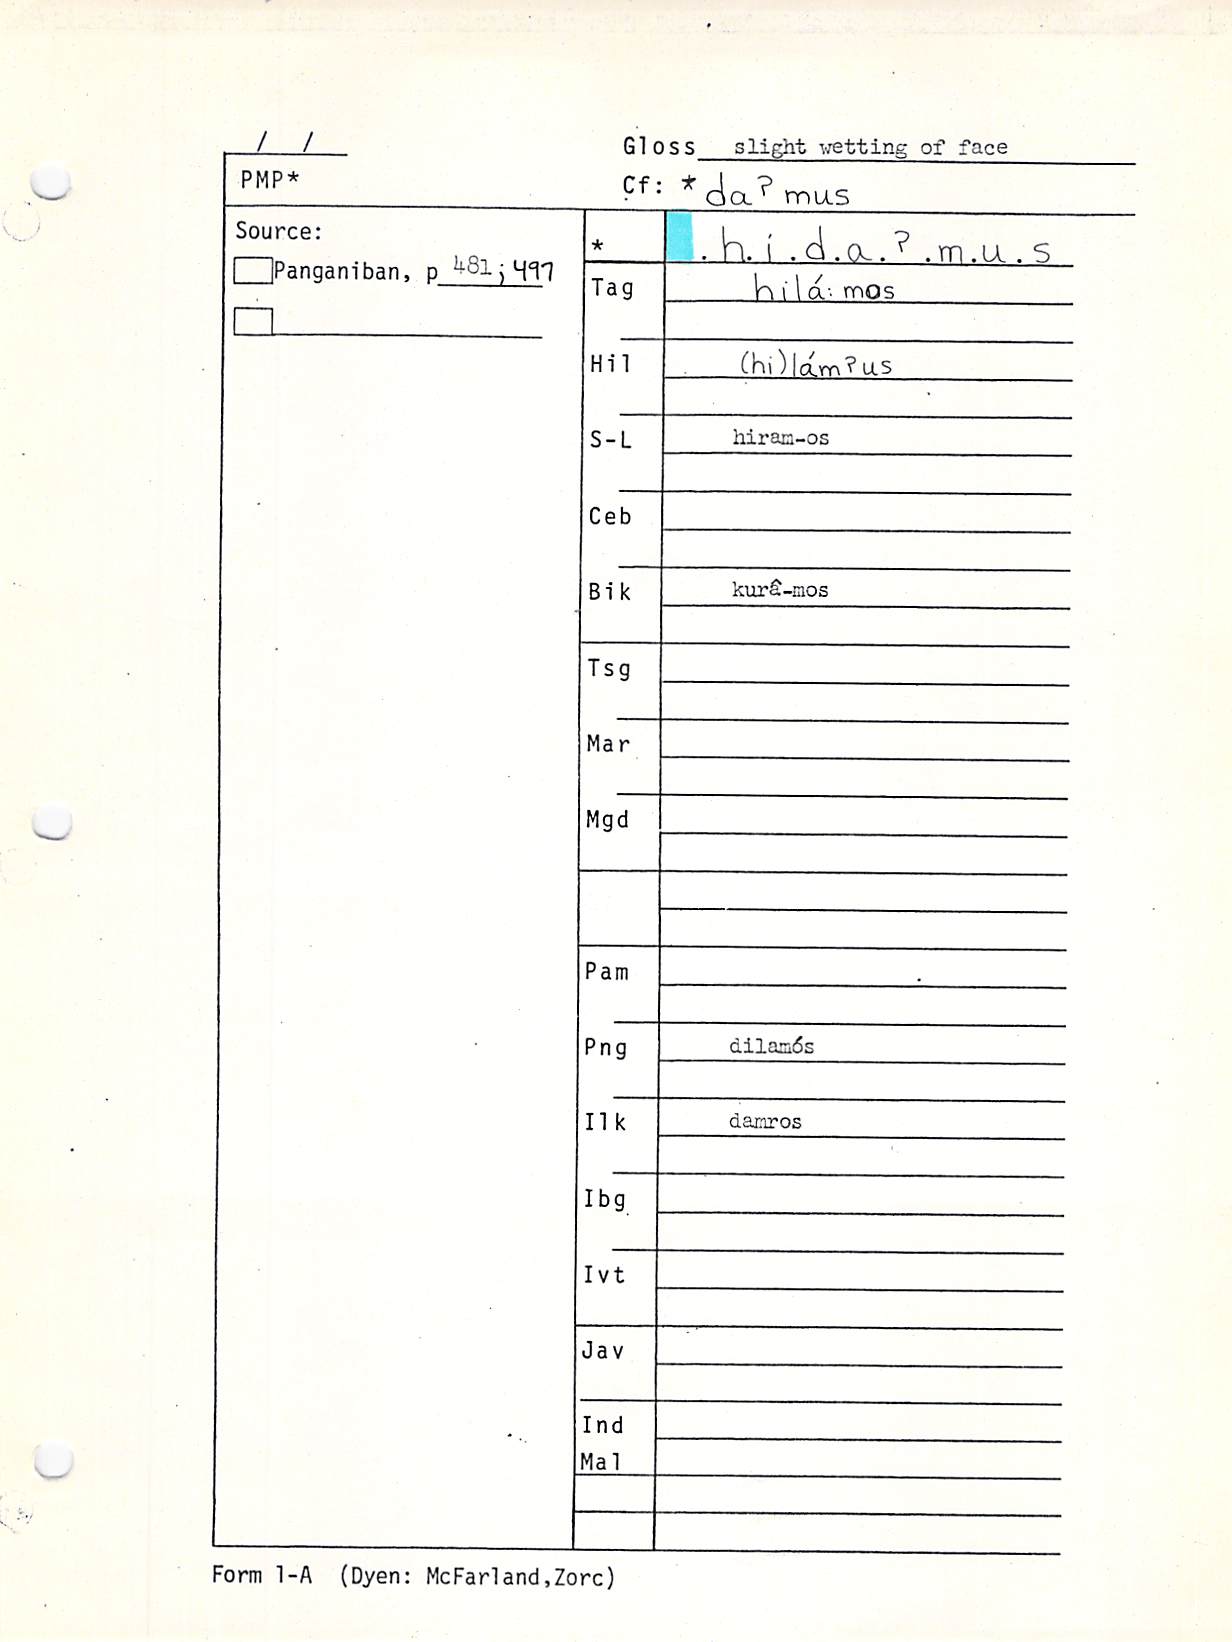 / /
Gloss slight wetting of face
PMP*
Cf: *daʔmus
Source:
* .h.i.d.a.ʔ.m.u.s
Panganiban, p 481; 497
Tag hilá:mos
Hil (hi)lámʔus
S-L hiram-os
Ceb
Bik kurâ-mos
Tsg
Mar
Mgd
Pam
Png dilamós
Ilk damros
Ibg
Ivt
Jav
Ind
Mal
Form 1-A (Dyen: McFarland,Zorc)